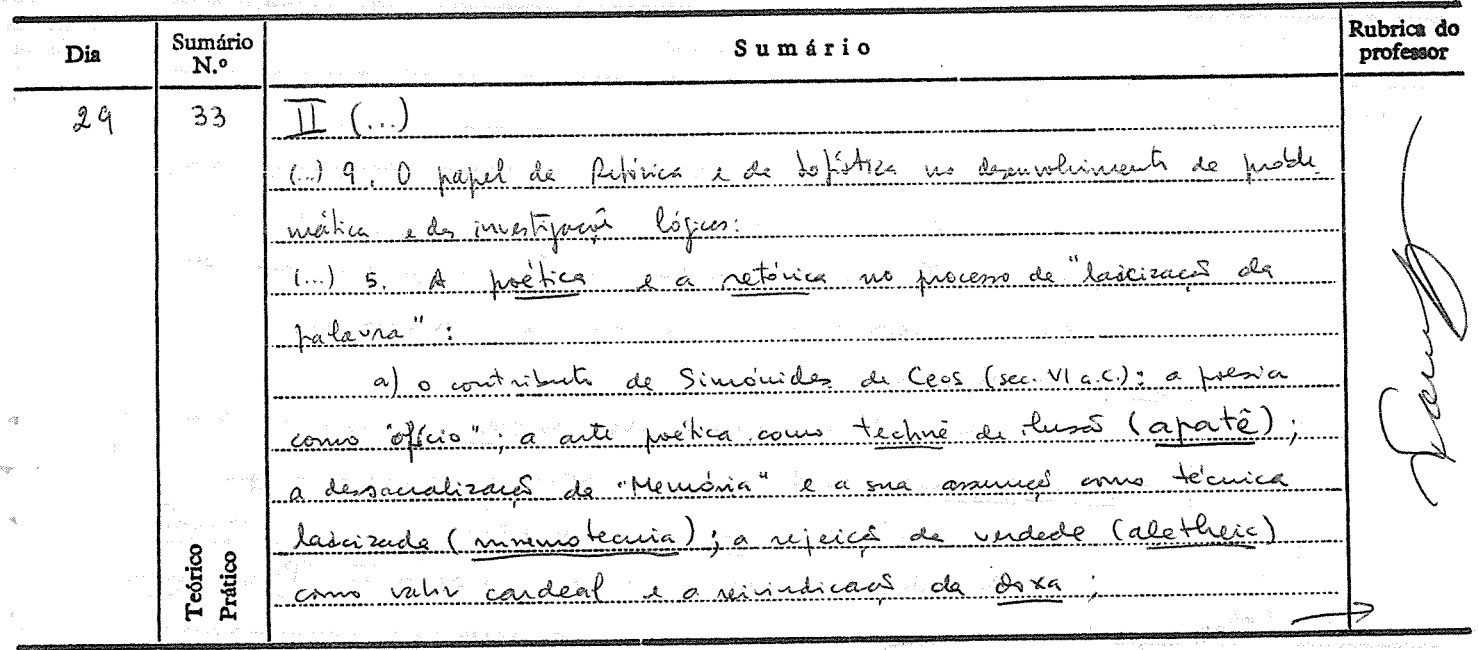 Dia Sumário N.º Sumário Rubrica do professor
29 33 II (...)
(...) 9. O papel da Retórica e da Sofística no desenvolvimento da proble
mática e das investigações lógicas:
(...) 5. A poética e a retórica no processo de "laicização da
palavra":
a) o contributo de Simónides de Ceos (sec. VI a.C.): a poesia
como "ofício"; a arte poética como technê de ilusão (apatê);
a dessacralização da "Memória" e a sua assunção como técnica
laicizada (mnemotecnia); a rejeição da verdade (aletheia)
como valor cardeal e a reivindicação da doxa;
Teórico
Prático